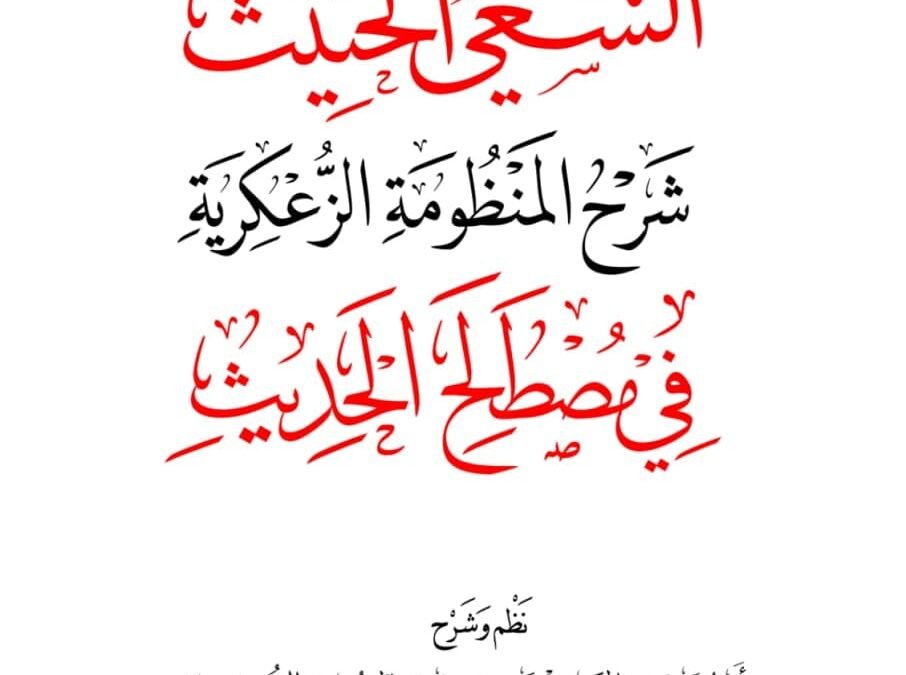 السَّعْيُ الْحَثِيثُ
شَرْحُ الْمَنْظُومَةِ الزُّعْكُرِيَّةِ
فِي مُصْطَلَحِ الْحَدِيثِ
نَظْم وَشَرْح